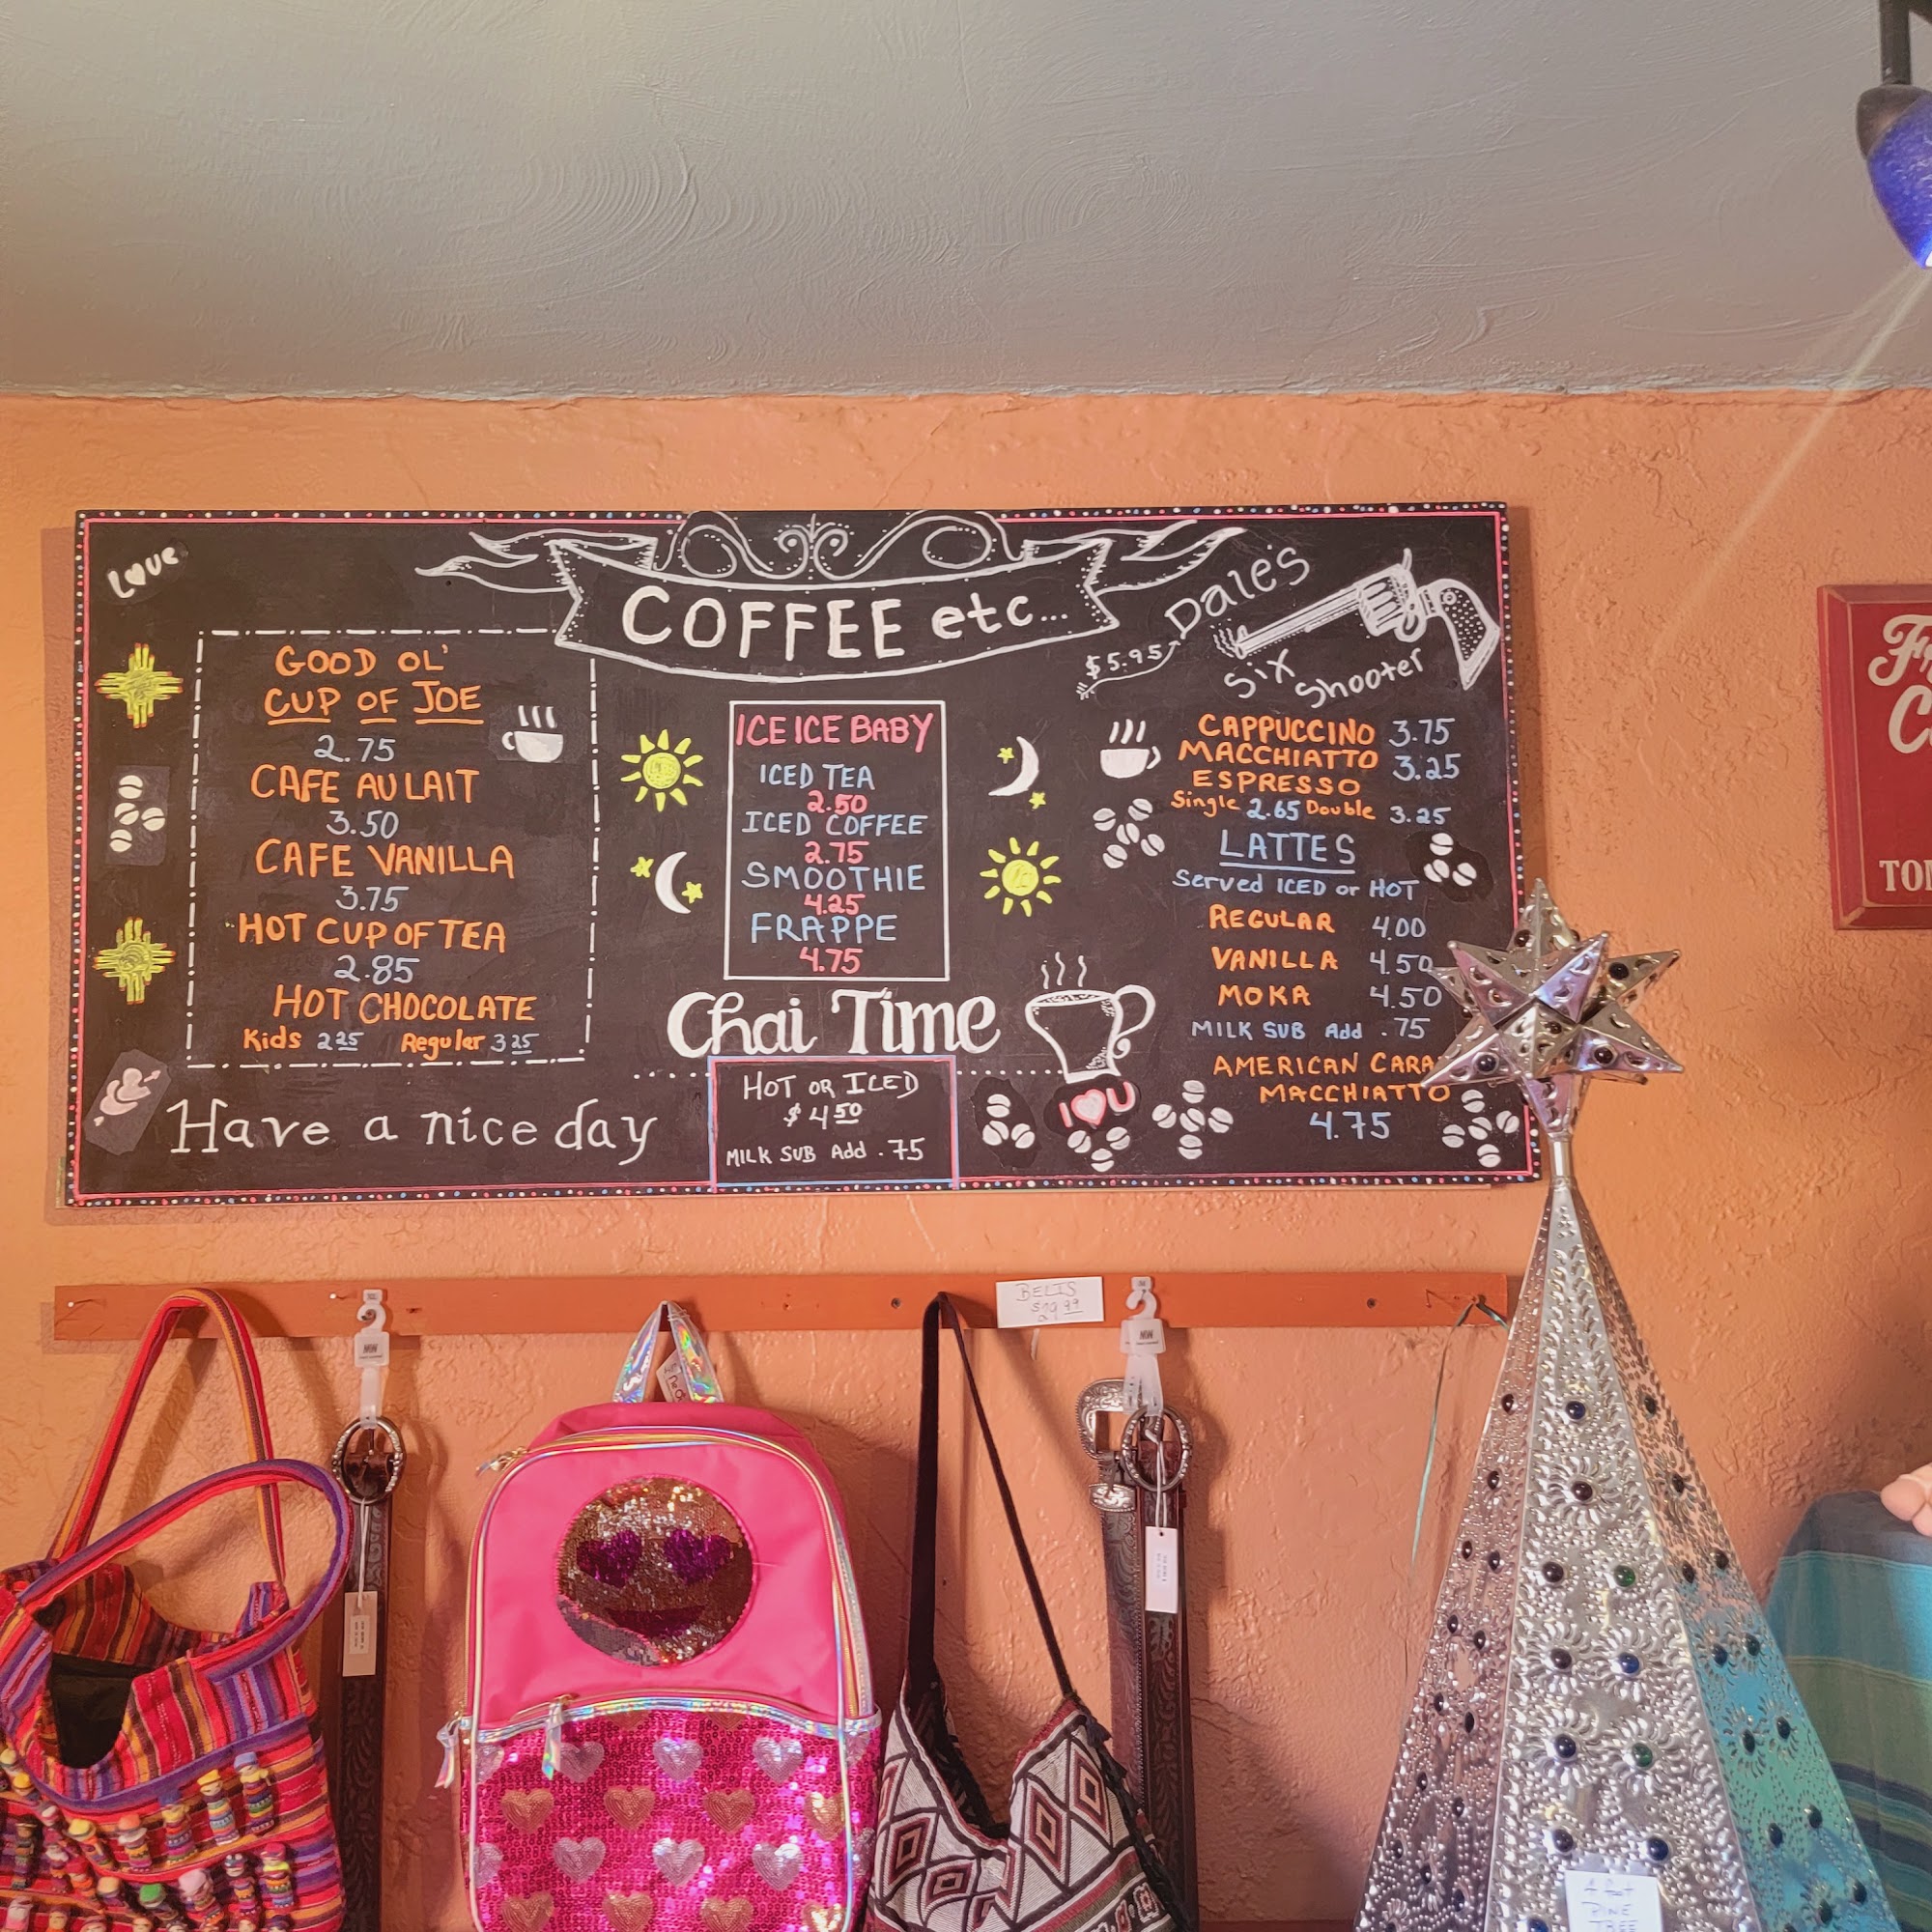 Love
COFFEE etc...
GOOD OL'
CUP OF JOE
2.75
CAFE AU LAIT
3.50
CAFE VANILLA
3.75
HOT CUP OF TEA
2.85
HOT CHOCOLATE
Kids 2 25 Regular 3 25
Have a nice day
ICE ICE BABY
ICED TEA
2.50
ICED COFFEE
2.75
SMOOTHIE
4.25
FRAPPE
4.75
Chai Time
HOT OR ICED
$ 4 50
MILK SUB Add .75
I U
Dale's
$5.95
Six
Shooter
CAPPUCCINO 3.75
MACCHIATTO 3.25
ESPRESSO
Single 2.65 Double 3.25
LATTES
Served ICED or HOT
REGULAR 4.00
VANILLA 4.50
MOKA 4.50
MILK SUB Add .75
AMERICAN CARA
MACCHIATTO
4.75
BELTS
PINE
TREE